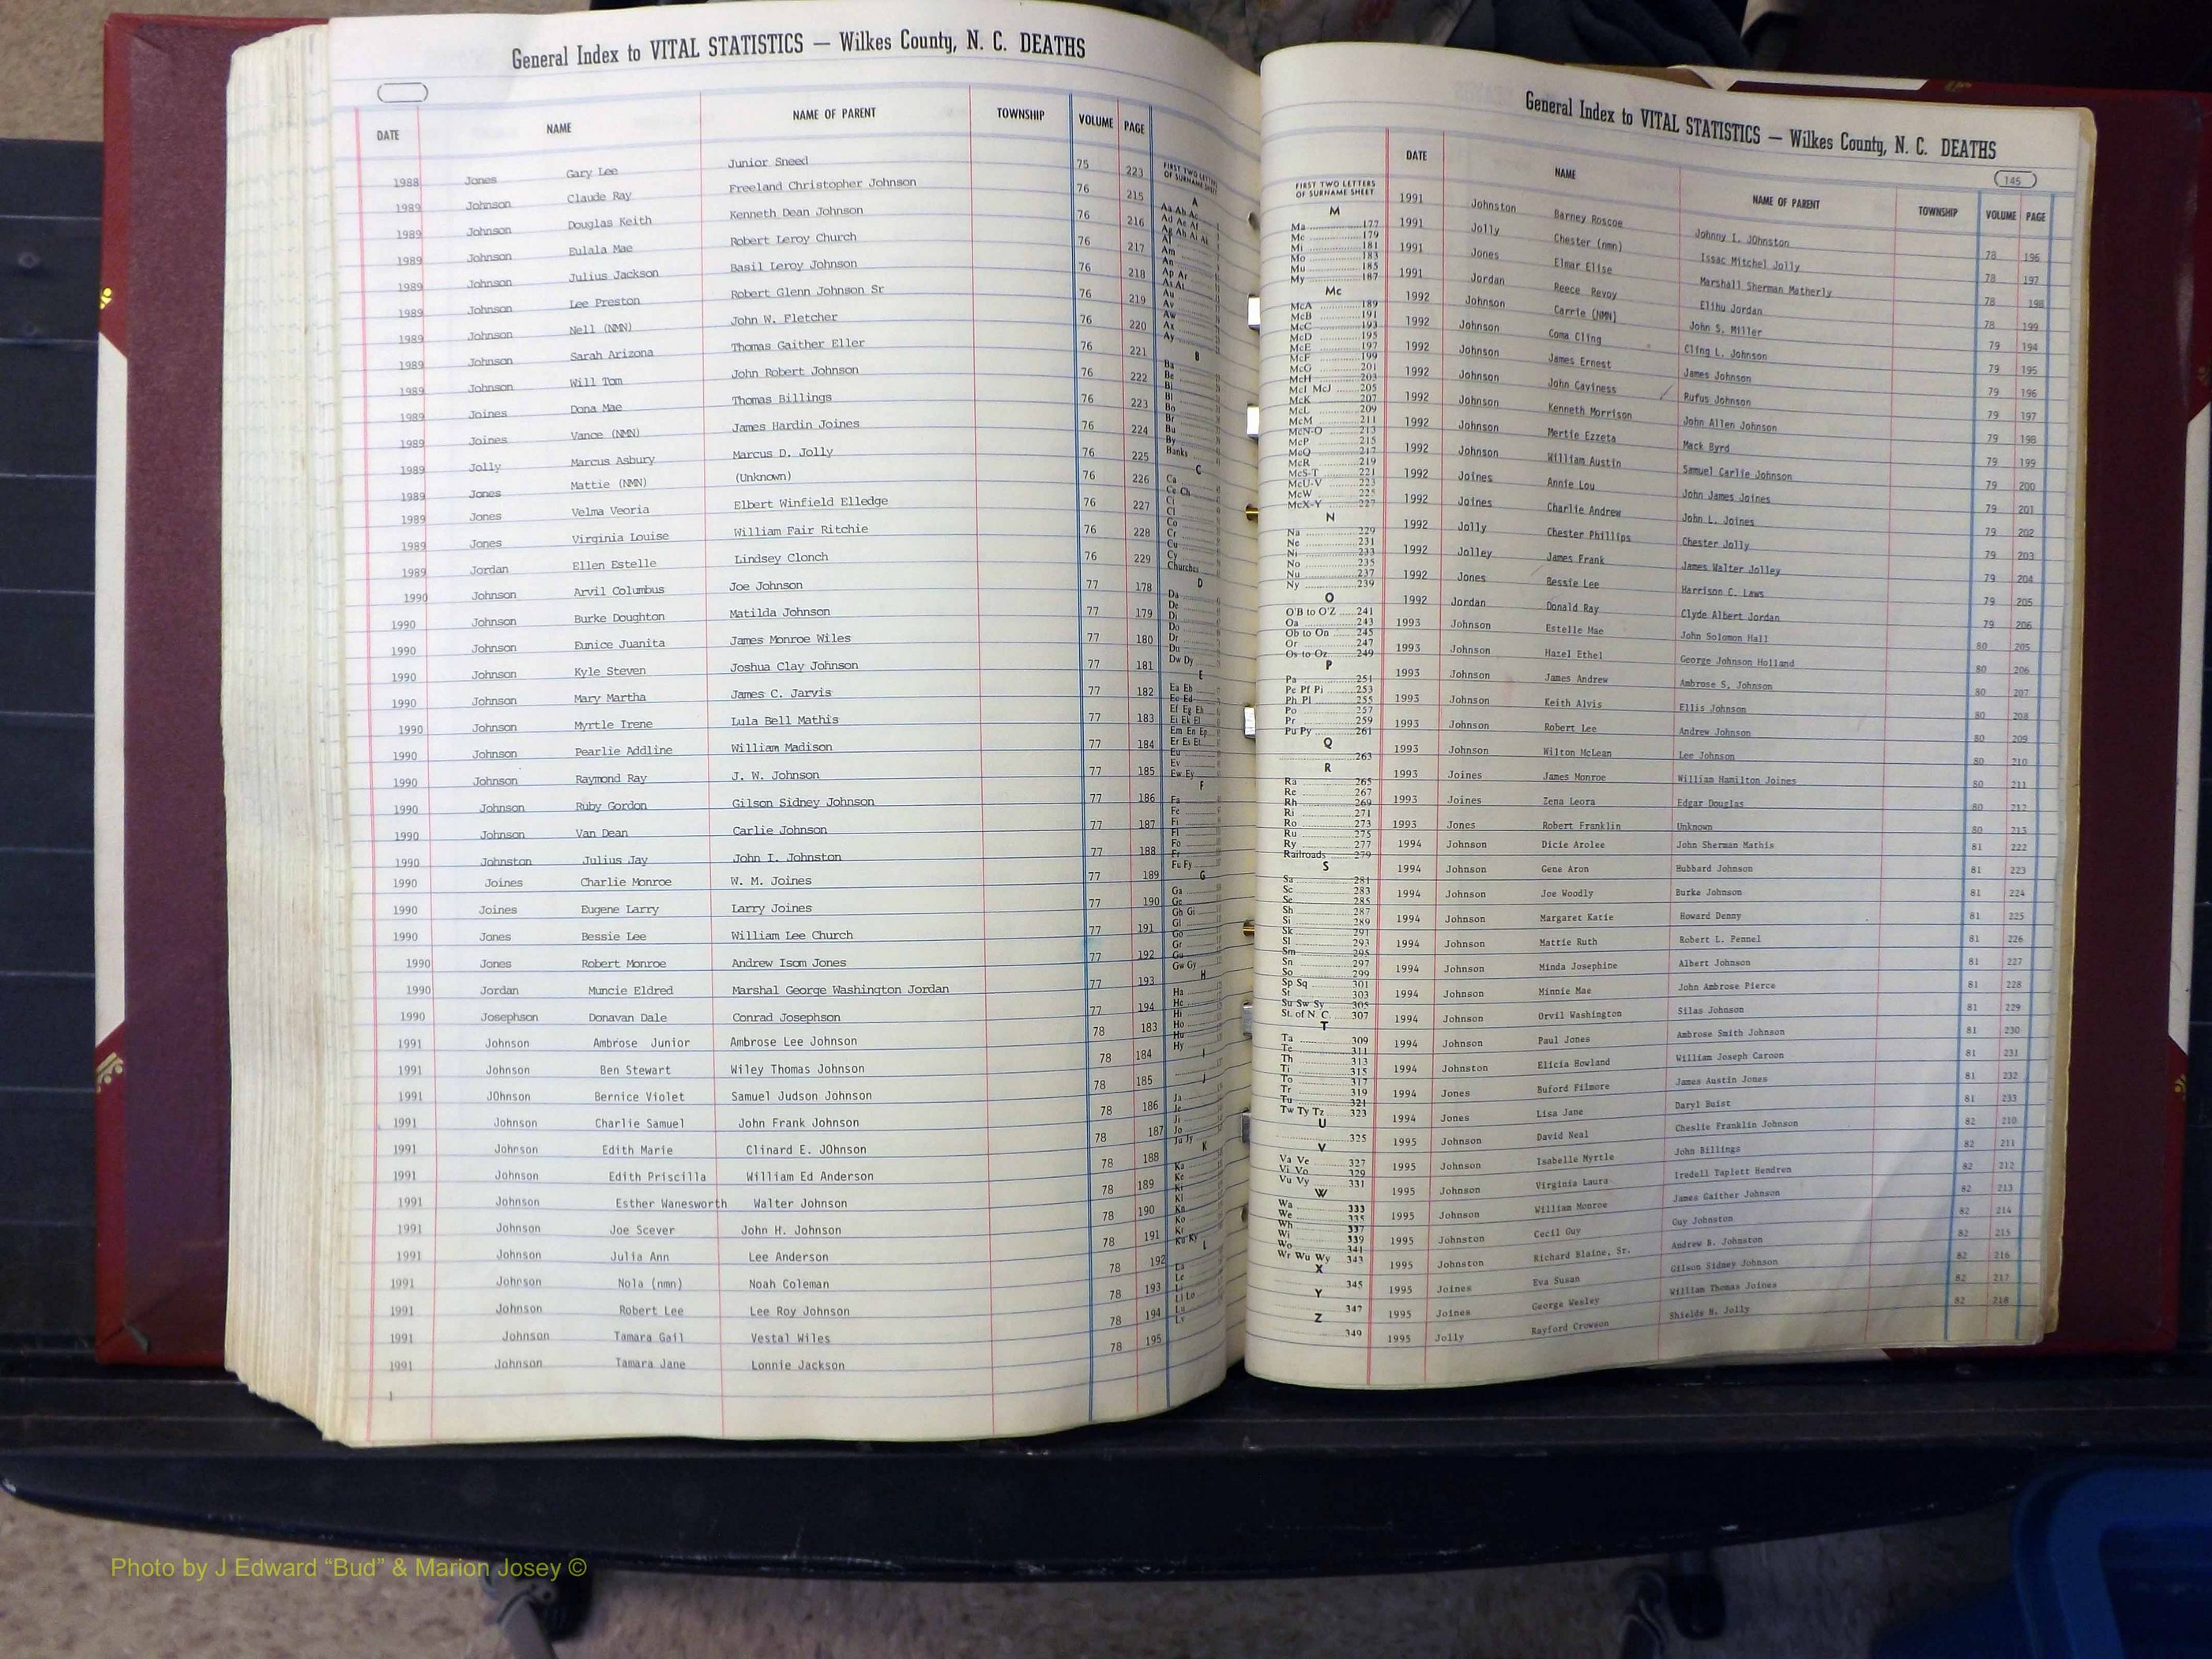 General Index to VITAL STATISTICS — Wilkes County, N. C. DEATHS
DATE NAME NAME OF PARENT TOWNSHIP VOLUME PAGE
1988 Jones Gary Lee Junior Sneed 75 223
1989 Johnson Claude Ray Freeland Christopher Johnson 76 215
1989 Johnson Douglas Keith Kenneth Dean Johnson 76 216
1989 Johnson Eulala Mae Robert Leroy Church 76 217
1989 Johnson Julius Jackson Basil Leroy Johnson 76 218
1989 Johnson Lee Preston Robert Glenn Johnson Sr 76 219
1989 Johnson Nell (NMN) John W. Fletcher 76 220
1989 Johnson Sarah Arizona Thomas Gaither Eller 76 221
1989 Johnson Will Tom John Robert Johnson 76 222
1989 Joines Dona Mae Thomas Billings 76 223
1989 Joines Vance (NMN) James Hardin Joines 76 224
1989 Jolly Marcus Asbury Marcus D. Jolly 76 225
1989 Jones Mattie (NMN) (Unknown) 76 226
1989 Jones Velma Veoria Elbert Winfield Elledge 76 227
1989 Jones Virginia Louise William Fair Ritchie 76 228
1989 Jordan Ellen Estelle Lindsey Clonch 76 229
1990 Johnson Arvil Columbus Joe Johnson 77 178
1990 Johnson Burke Doughton Matilda Johnson 77 179
1990 Johnson Eunice Juanita James Monroe Wiles 77 180
1990 Johnson Kyle Steven Joshua Clay Johnson 77 181
1990 Johnson Mary Martha James C. Jarvis 77 182
1990 Johnson Myrtle Irene Lula Bell Mathis 77 183
1990 Johnson Pearlie Addline William Madison 77 184
1990 Johnson Raymond Ray J. W. Johnson 77 185
1990 Johnson Ruby Gordon Gilson Sidney Johnson 77 186
1990 Johnson Van Dean Carlie Johnson 77 187
1990 Johnston Julius Jay John I. Johnston 77 188
1990 Joines Charlie Monroe W. M. Joines 77 189
1990 Joines Eugene Larry Larry Joines 77 190
1990 Jones Bessie Lee William Lee Church 77 191
1990 Jones Robert Monroe Andrew Isom Jones 77 192
1990 Jordan Muncie Eldred Marshal George Washington Jordan 77 193
1990 Josephson Donavan Dale Conrad Josephson 77 194
1991 Johnson Ambrose Junior Ambrose Lee Johnson 78 183
1991 Johnson Ben Stewart Wiley Thomas Johnson 78 184
1991 JOhnson Bernice Violet Samuel Judson Johnson 78 185
1991 Johnson Charlie Samuel John Frank Johnson 78 186
1991 Johnson Edith Marie Clinard E. JOhnson 78 187
1991 Johnson Edith Priscilla William Ed Anderson 78 188
1991 Johnson Esther Wanesworth Walter Johnson 78 189
1991 Johnson Joe Scever John H. Johnson 78 190
1991 Johnson Julia Ann Lee Anderson 78 191
1991 Johnson Nola (nmn) Noah Coleman 78 192
1991 Johnson Robert Lee Lee Roy Johnson 78 193
1991 Johnson Tamara Gail Vestal Wiles 78 194
1991 Johnson Tamara Jane Lonnie Jackson 78 195
FIRST TWO LETTERS
OF SURNAME SHEET
A
Aa Ab Ac
Ad Ae Af
Ag Ah Ai Ak
Al
Am
An
Ap Ar
As At
Au
Av
Aw
Ax
Ay
B
Ba
Be
Bi
Bl
Bo
Br
Bu
By
Banks
C
Ca
Ce Ch
Ci
Cl
Co
Cr
Cu
Cy
Churches
D
Da
De
Di
Do
Dr
Du
Dw Dy
E
Ea Eb
Ec Ed
Ef Eg Eh
Ei Ek El
Em En Ep
Er Es Et
Eu
Ev
Ew Ey
F
Fa
Fe
Fi
Fl
Fo
Fr
Fu Fy
G
Ga
Ge
Gh Gi
Gl
Go
Gr
Gu
Gw Gy
H
Ha
He
Hi
Ho
Hu
Hy
I
J
Ja
Je
Ji
Jo
Ju Jy
K
Ka
Ke
Ki
Kl
Kn
Ko
Kr
Ku Ky
L
La
Le
Li
Ll Lo
Lu
Ly
General Index to VITAL STATISTICS — Wilkes County, N. C. DEATHS
145
DATE NAME NAME OF PARENT TOWNSHIP VOLUME PAGE
FIRST TWO LETTERS
OF SURNAME SHEET
M
Ma 177
Me 179
Mi 181
Mo 183
Mu 185
My 187
Mc
McA 189
McB 191
McC 193
McD 195
McE 197
McF 199
McG 201
McH 203
McI McJ 205
McK 207
McL 209
McM 211
McN-O 213
McP 215
McQ 217
McR 219
McS-T 221
McU-V 223
McW 225
McX-Y 227
N
Na 229
Ne 231
Ni 233
No 235
Nu 237
Ny 239
O
O'B to O'Z 241
Oa 243
Ob to On 245
Or 247
Os to Oz 249
P
Pa 251
Pe Pf Pi 253
Ph Pl 255
Po 257
Pr 259
Pu Py 261
Q
263
R
Ra 265
Re 267
Rh 269
Ri 271
Ro 273
Ru 275
Ry 277
Railroads 279
S
Sa 281
Sc 283
Se 285
Sh 287
Si 289
Sk 291
Sl 293
Sm 295
Sn 297
So 299
Sp Sq 301
St 303
Su Sw Sy 305
St. of N. C. 307
T
Ta 309
Te 311
Th 313
Ti 315
To 317
Tr 319
Tu 321
Tw Ty Tz 323
U
325
V
Va Ve 327
Vi Vo 329
Vu Vy 331
W
Wa 333
We 335
Wh 337
Wi 339
Wo 341
Wr Wu Wy 343
X
345
Y
347
Z
349
1991 Johnston Barney Roscoe Johnny I. JOhnston 78 196
1991 Jolly Chester (nmn) Issac Mitchel Jolly 78 197
1991 Jones Elmar Elise Marshall Sherman Matherly 78 198
1991 Jordan Reece Revoy Elihu Jordan 78 199
1992 Johnson Carrie (NMN) John S. Miller 79 194
1992 Johnson Coma Cling Cling L. Johnson 79 195
1992 Johnson James Ernest James Johnson 79 196
1992 Johnson John Caviness Rufus Johnson 79 197
1992 Johnson Kenneth Morrison John Allen Johnson 79 198
1992 Johnson Mertie Ezzeta Mack Byrd 79 199
1992 Johnson William Austin Samuel Carlie Johnson 79 200
1992 Joines Annie Lou John James Joines 79 201
1992 Joines Charlie Andrew John L. Joines 79 202
1992 Jolly Chester Phillips Chester Jolly 79 203
1992 Jolley James Frank James Walter Jolley 79 204
1992 Jones Bessie Lee Harrison C. Laws 79 205
1992 Jordan Donald Ray Clyde Albert Jordan 79 206
1993 Johnson Estelle Mae John Solomon Hall 80 205
1993 Johnson Hazel Ethel George Johnson Holland 80 206
1993 Johnson James Andrew Ambrose S. Johnson 80 207
1993 Johnson Keith Alvis Ellis Johnson 80 208
1993 Johnson Robert Lee Andrew Johnson 80 209
1993 Johnson Wilton McLean Lee Johnson 80 210
1993 Joines James Monroe William Hamilton Joines 80 211
1993 Joines Zena Leora Edgar Douglas 80 212
1993 Jones Robert Franklin Unknown 80 213
1994 Johnson Dicie Arolee John Sherman Mathis 81 222
1994 Johnson Gene Aron Hubbard Johnson 81 223
1994 Johnson Joe Woodly Burke Johnson 81 224
1994 Johnson Margaret Katie Howard Denny 81 225
1994 Johnson Mattie Ruth Robert L. Pennel 81 226
1994 Johnson Minda Josephine Albert Johnson 81 227
1994 Johnson Minnie Mae John Ambrose Pierce 81 228
1994 Johnson Orvil Washington Silas Johnson 81 229
1994 Johnson Paul Jones Ambrose Smith Johnson 81 230
1994 Johnston Elicia Howland William Joseph Caroon 81 231
1994 Jones Buford Filmore James Austin Jones 81 232
1994 Jones Lisa Jane Daryl Buist 81 233
1995 Johnson David Neal Cheslie Franklin Johnson 82 210
1995 Johnson Isabelle Myrtle John Billings 82 211
1995 Johnson Virginia Laura Iredell Taplett Hendren 82 212
1995 Johnson William Monroe James Gaither Johnson 82 213
1995 Johnston Cecil Guy Guy Johnston 82 214
1995 Johnston Richard Blaine, Sr. Andrew B. Johnston 82 215
1995 Joines Eva Susan Gilson Sidney Johnson 82 216
1995 Joines George Wesley William Thomas Joines 82 217
1995 Jolly Rayford Crowson Shields N. Jolly 82 218
Photo by J Edward “Bud” & Marion Josey ©